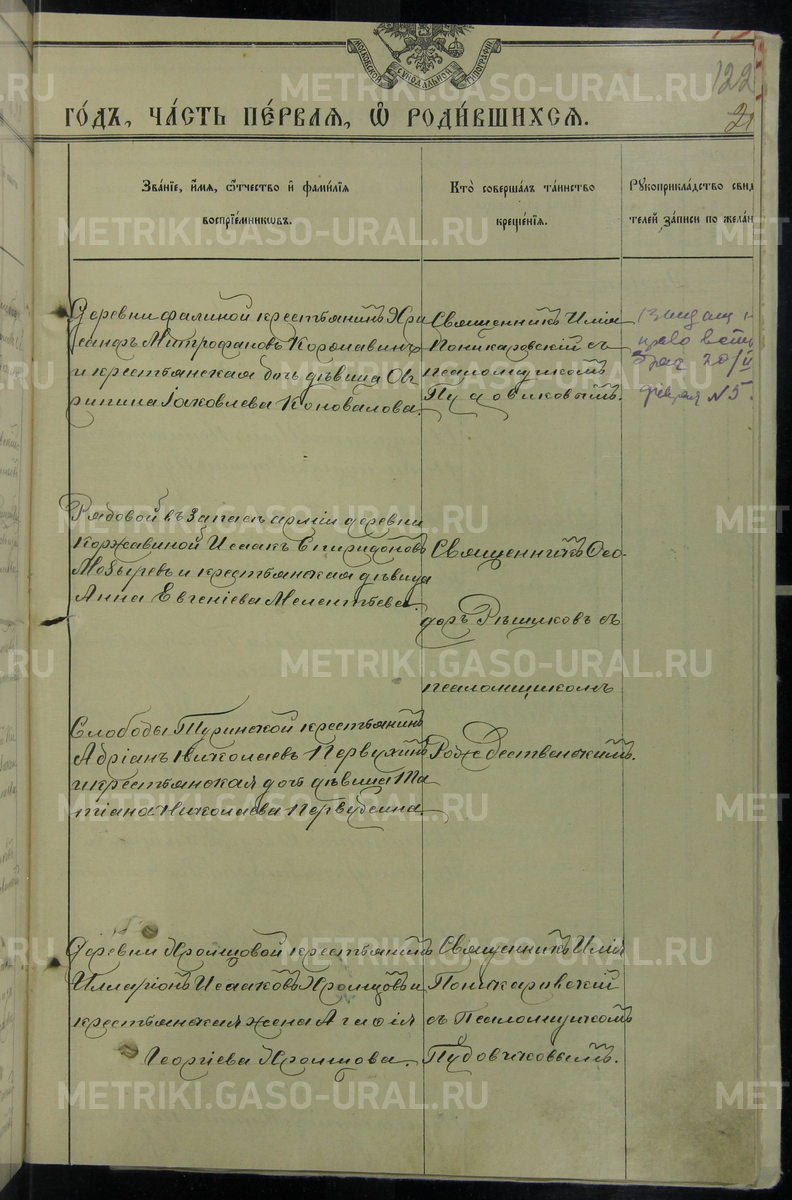 МОСКОВСКОЙ СѴНОДАЛЬНОЙ ТИПОГРАФІИ
122
ГО́ДЪ, ЧА́СТЬ ПЕ́РВАЯ, Ѽ РОДИ́ВШИХСЯ.
Зва́нїе, и҆́мѧ, ѻ҆́тчество и҆ фами́лїѧ
воспрїе́мникѡвъ.
Кто̀ соверша́лъ та́инство
креще́нїѧ.
Рꙋкоприкла́дство свид
телей за́писи по жела́н
Деревни Фалиной крестьянинъ Хри
санфъ Митрофановъ Коромавинъ
и крестьянская дочь дѣвица Ов
рипина Іаковлева Коновалова.
Священникъ Илія
Поникаровскій съ
псаломщикомъ
Пудовиковымъ.
20/II
№ 5.
Рядовой въ запасѣ арміи деревни
Коржавиной Исаакъ Спиридоновъ
Мозыревъ и крестьянская дѣвица
Анна Евгеніева Мелентьева.
Священникъ Ѳео-
доръ Рѣшиковъ съ
псаломщикомъ
Рождественскимъ.
Слободы Туринской крестьянинъ
Адріанъ Николаевъ Первухинъ
и крестьянская дочь дѣвица Та
тіана Николаева Первухина.
Деревни Храмцовой крестьянинъ
Илларіонъ Исааковъ Храмцовъ и
крестьянская жена Агафія
Георгіева Храмцова.
Священникъ Илія
Поникаровскій
съ Псаломщикомъ
Пудовиковымъ.
METRIKI.GASO-URAL.RU